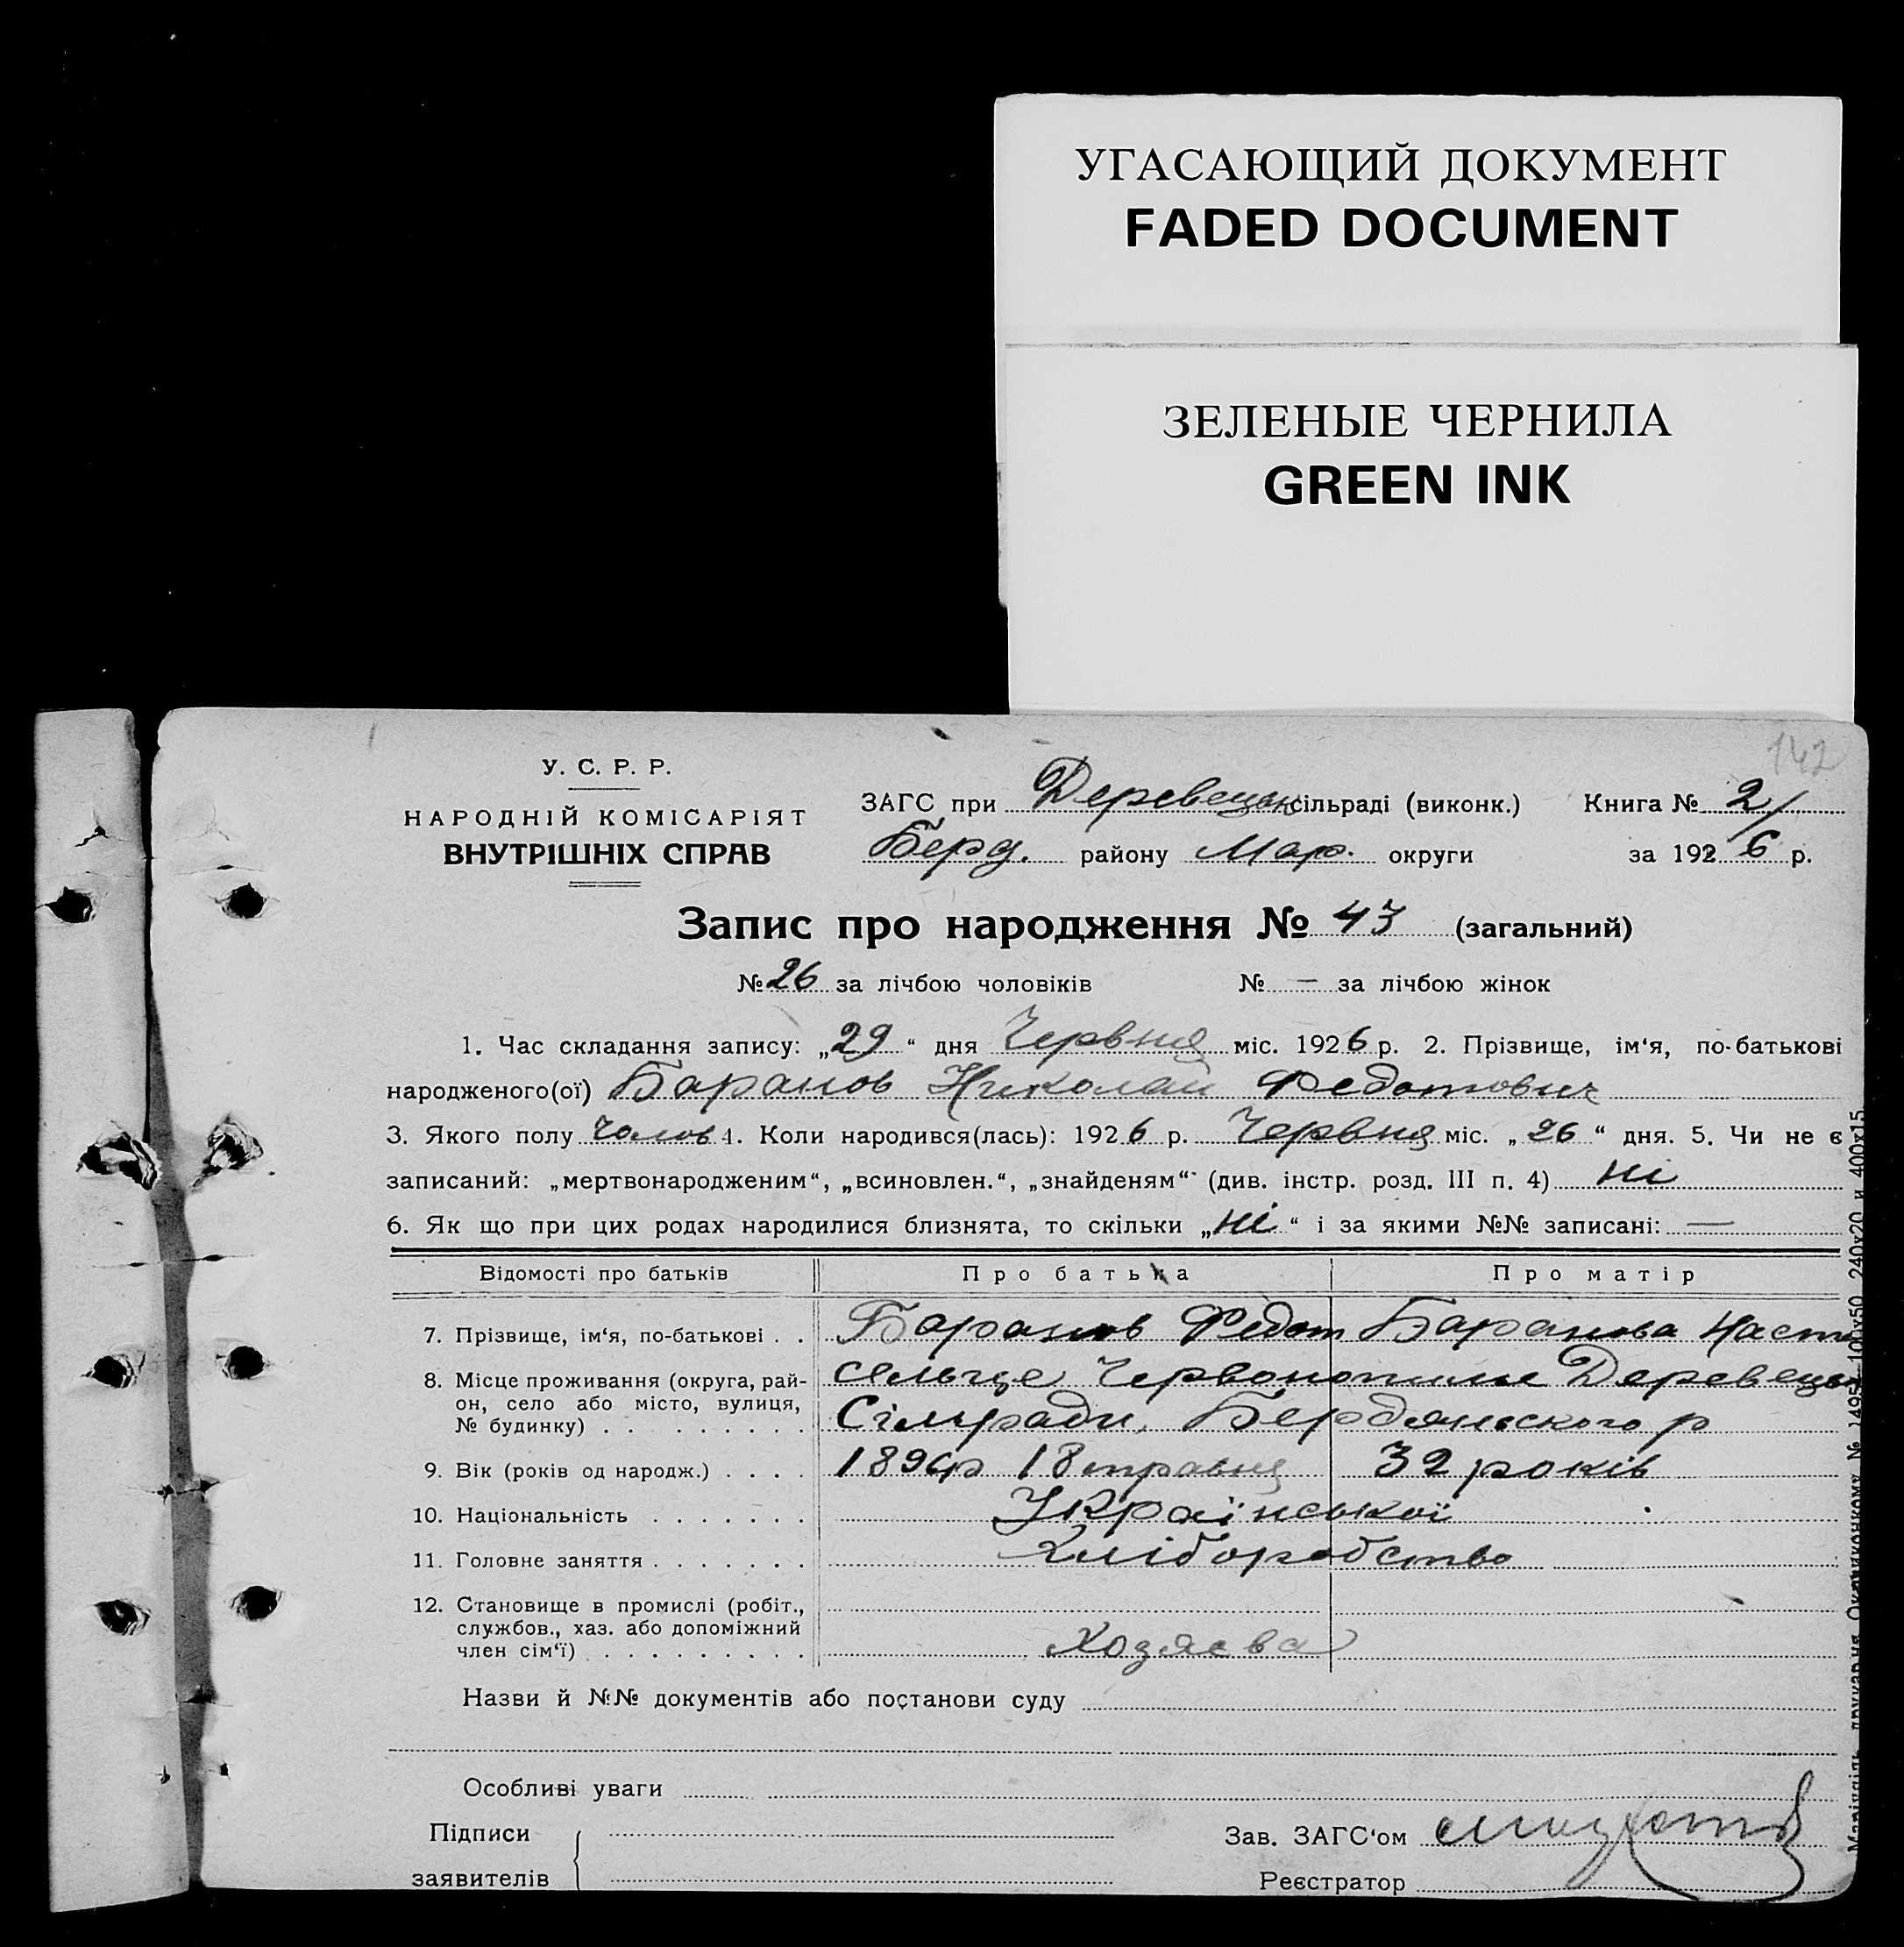 УГАСАЮЩИЙ ДОКУМЕНТ
FADED DOCUMENT
ЗЕЛЕНЫЕ ЧЕРНИЛА
GREEN INK
142
У. С. Р. Р.
НАРОДНІЙ КОМІСАРІЯТ
ВНУТРІШНІХ СПРАВ
ЗАГС при Деревецьк сільраді (виконк.) Книга № 2/
Берд. району Мар. округи за 1926 р.
Запис про народження № 43 (загальний)
№ 26 за лічбою чоловіків № — за лічбою жінок
1. Час складання запису: „29“ дня Червня міс. 1926 р. 2. Прізвище, ім‘я, по-батькові
народженого(ої) Баранов Николай Федотович
3. Якого полу чолов 4. Коли народився(лась): 1926 р. Червня міс. „26“ дня. 5. Чи не є
записаний: „мертвонародженим“, „всиновлен.“, „знайденям“ (див. інстр. розд. III п. 4) ні
6. Як що при цих родах народилися близнята, то скільки „ні“ і за якими №№ записані: —
Відомості про батьків Про батька Про матір
7. Прізвище, ім‘я, по-батькові . . Баранов Федот Баранова Наст
8. Місце проживання (округа, рай-
он, село або місто, вулиця,
№ будинку) . . . . . . . .
сельце Деревецьк
Сільради, Бердянського р
9. Вік (років од народж.) . . . . 1894р 18 травня 32 років
10. Національність . . . . . . . Української
11. Головне заняття . . . . . . . Хліборобство
12. Становище в промислі (робіт.,
службов., хаз. або допоміжний
член сім‘ї) . . . . . . . . . . Хозяєва
Назви й №№ документів або постанови суду
Особливі уваги
Підписи
заявителів
Зав. ЗАГС‘ом
Реєстратор
Маріупіль, друкарня Окрвиконкому № 1495 100х50 240х20 и 400х15